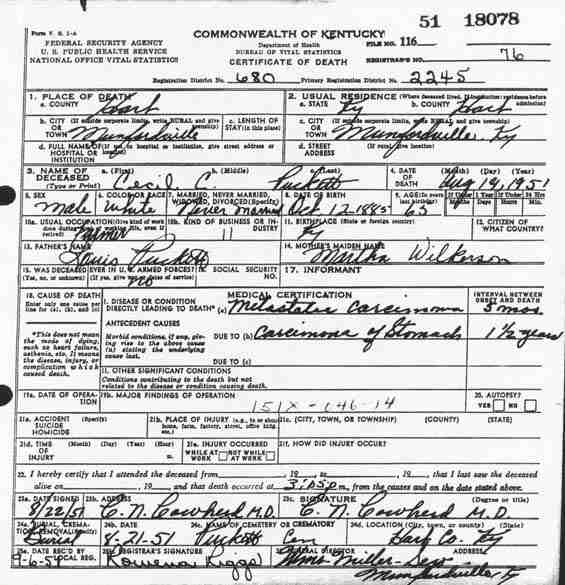 51 18078
Form V. S. 1-A
COMMONWEALTH OF KENTUCKY
FEDERAL SECURITY AGENCY
U. S. PUBLIC HEALTH SERVICE
NATIONAL OFFICE VITAL STATISTICS
Department of Health
BUREAU OF VITAL STATISTICS
CERTIFICATE OF DEATH
FILE NO. 116
REGISTRAR'S NO. 76
Registration District No. 680 Primary Registration District No. 2245
1. PLACE OF DEATH
a. COUNTY Hart
2. USUAL RESIDENCE (Where deceased lived. If institution: residence before admission)
a. STATE Ky b. COUNTY Hart
b. CITY (If outside corporate limits, write RURAL and give township)
OR TOWN Munfordville
c. LENGTH OF STAY (in this place)
c. CITY (If outside corporate limits, write RURAL and give township)
OR TOWN Munfordville Ky
d. FULL NAME OF (If not in hospital or institution, give street address or location)
HOSPITAL OR INSTITUTION
d. STREET ADDRESS (If rural, give location)
3. NAME OF DECEASED (Type or Print)
a. (First) Cecil b. (Middle) C. c. (Last) Puckett
4. DATE OF DEATH (Month) (Day) (Year) Aug 19, 1951
5. SEX Male
6. COLOR OR RACE White
7. MARRIED, NEVER MARRIED, WIDOWED, DIVORCED (Specify) Never married
8. DATE OF BIRTH 12-1885
9. AGE (In years last birthday) 65
10a. USUAL OCCUPATION (Give kind of work done during most of working life, even if retired) Farmer
10b. KIND OF BUSINESS OR INDUSTRY
11. BIRTHPLACE (State or foreign country) Ky
12. CITIZEN OF WHAT COUNTRY?
13. FATHER'S NAME Louis Puckett
14. MOTHER'S MAIDEN NAME Martha Wilkerson
15. WAS DECEASED EVER IN U. S. ARMED FORCES? (Yes, no, or unknown) (If yes, give war or dates of service) no
16. SOCIAL SECURITY NO.
17. INFORMANT
18. CAUSE OF DEATH
Enter only one cause per line for (a), (b), and (c)
*This does not mean the mode of dying, such as heart failure, asthenia, etc. It means the disease, injury, or complication which caused death.
MEDICAL CERTIFICATION
INTERVAL BETWEEN ONSET AND DEATH
I. DISEASE OR CONDITION
DIRECTLY LEADING TO DEATH* (a) Metastatic Carcinoma 5 mos.
ANTECEDENT CAUSES
Morbid conditions, if any, giving rise to the above cause (a) stating the underlying cause last.
DUE TO (b) Carcinoma of Stomach 1 1/2 years
DUE TO (c)
II. OTHER SIGNIFICANT CONDITIONS
Conditions contributing to the death but not related to the disease or condition causing death.
19a. DATE OF OPERATION
19b. MAJOR FINDINGS OF OPERATION
151X-046-14
20. AUTOPSY?
YES NO
21a. ACCIDENT SUICIDE HOMICIDE (Specify)
21b. PLACE OF INJURY (e.g., in or about home, farm, factory, street, office bldg., etc.)
21c. (CITY, TOWN, OR TOWNSHIP) (COUNTY) (STATE)
21d. TIME OF INJURY (Month) (Day) (Year) (Hour) m.
21e. INJURY OCCURRED
WHILE AT WORK NOT WHILE AT WORK
21f. HOW DID INJURY OCCUR?
22. I hereby certify that I attended the deceased from , 19 , to , 19 , that I last saw the deceased
alive on , 19 , and that death occurred at 3:15 p m., from the causes and on the date stated above.
23a. DATE SIGNED 8/22/51
23b. ADDRESS C. N. Cowherd M.D.
23c. SIGNATURE (Degree or title) C. N. Cowherd M.D.
24a. BURIAL, CREMATION, REMOVAL (Specify) Burial
24b. DATE 8-21-51
24c. NAME OF CEMETERY OR CREMATORY Puckett Cem
24d. LOCATION (City, town, or county) (State) Hart Co. Ky
25a. DATE REC'D BY LOCAL REG. 9-6-51
25b. REGISTRAR'S SIGNATURE Rowena Riggs
FUNERAL DIRECTOR ADDRESS
Munfordville, Ky